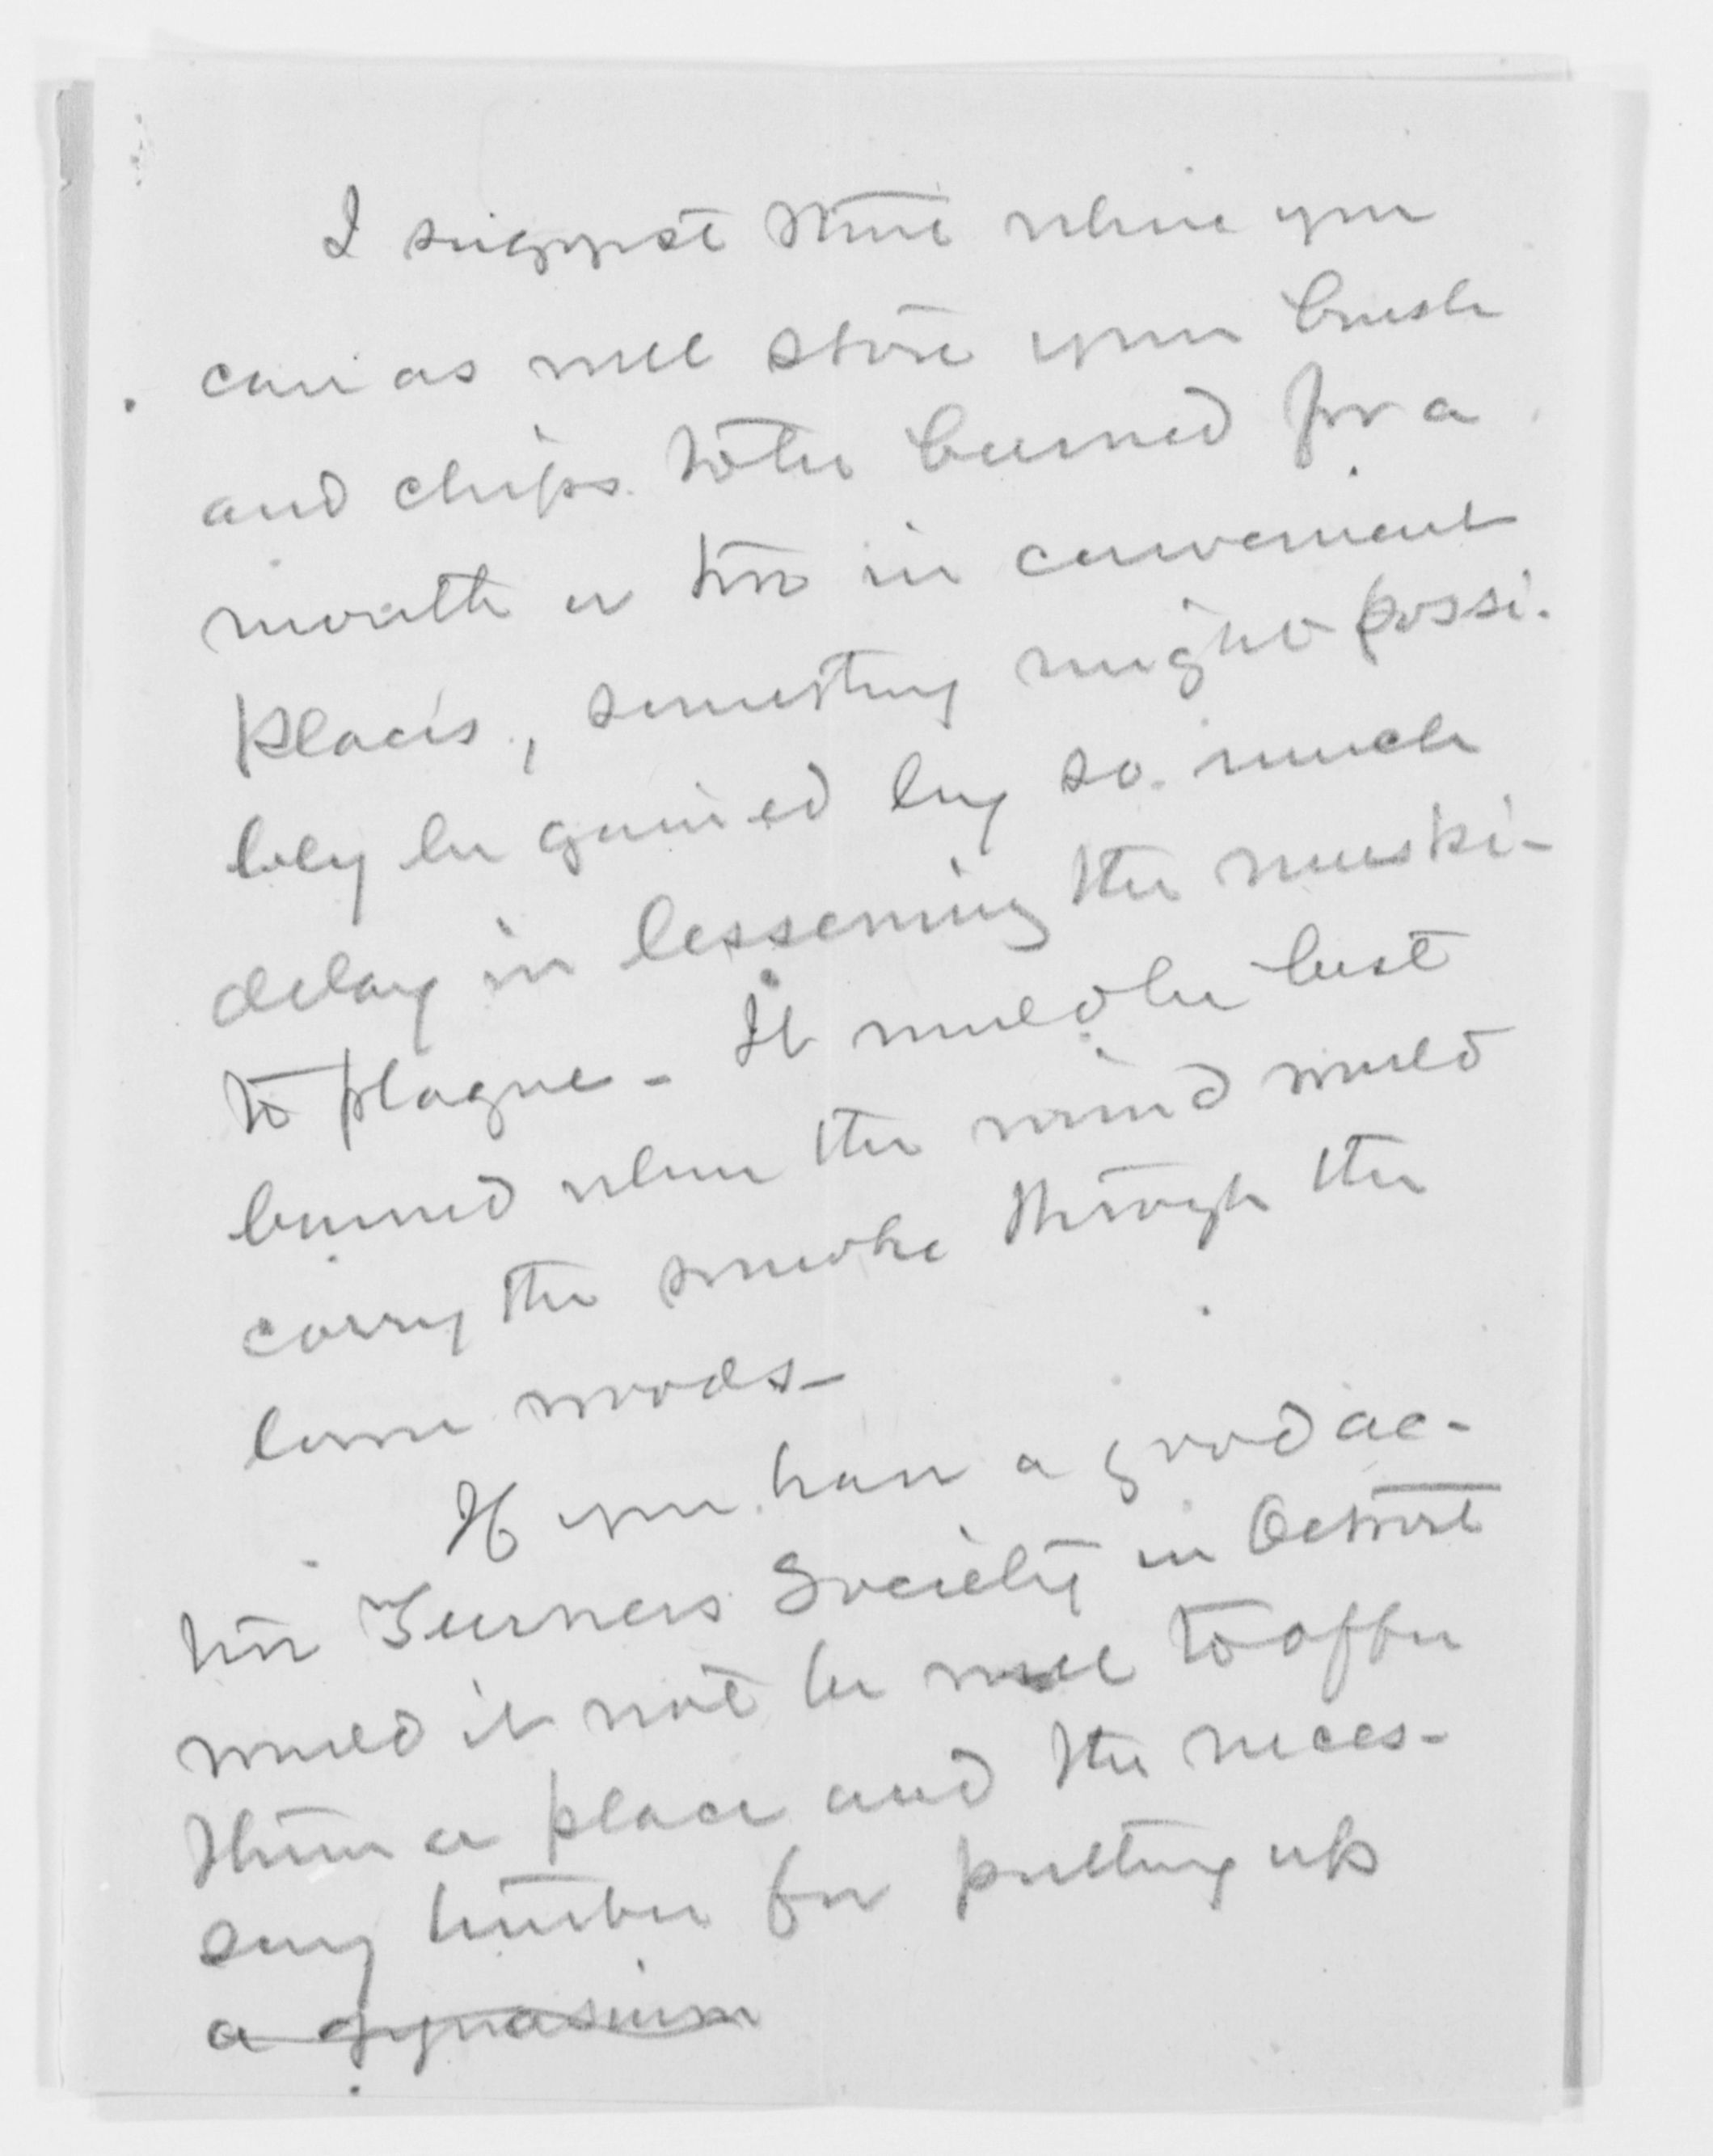 I suggest that where you
can as well store your brush
and chips to be burned for a
month or two in convenient
places, something might possi-
bly be gained by so much
delay in lessening the muski-
to plague - It would be best
burned when the wind would
carry the smoke through the
low woods -
If you have a good ac-
tive Turners Society in Detroit
would it not be well to offer
them a place and the neces-
sary timber for putting up
a gynasium